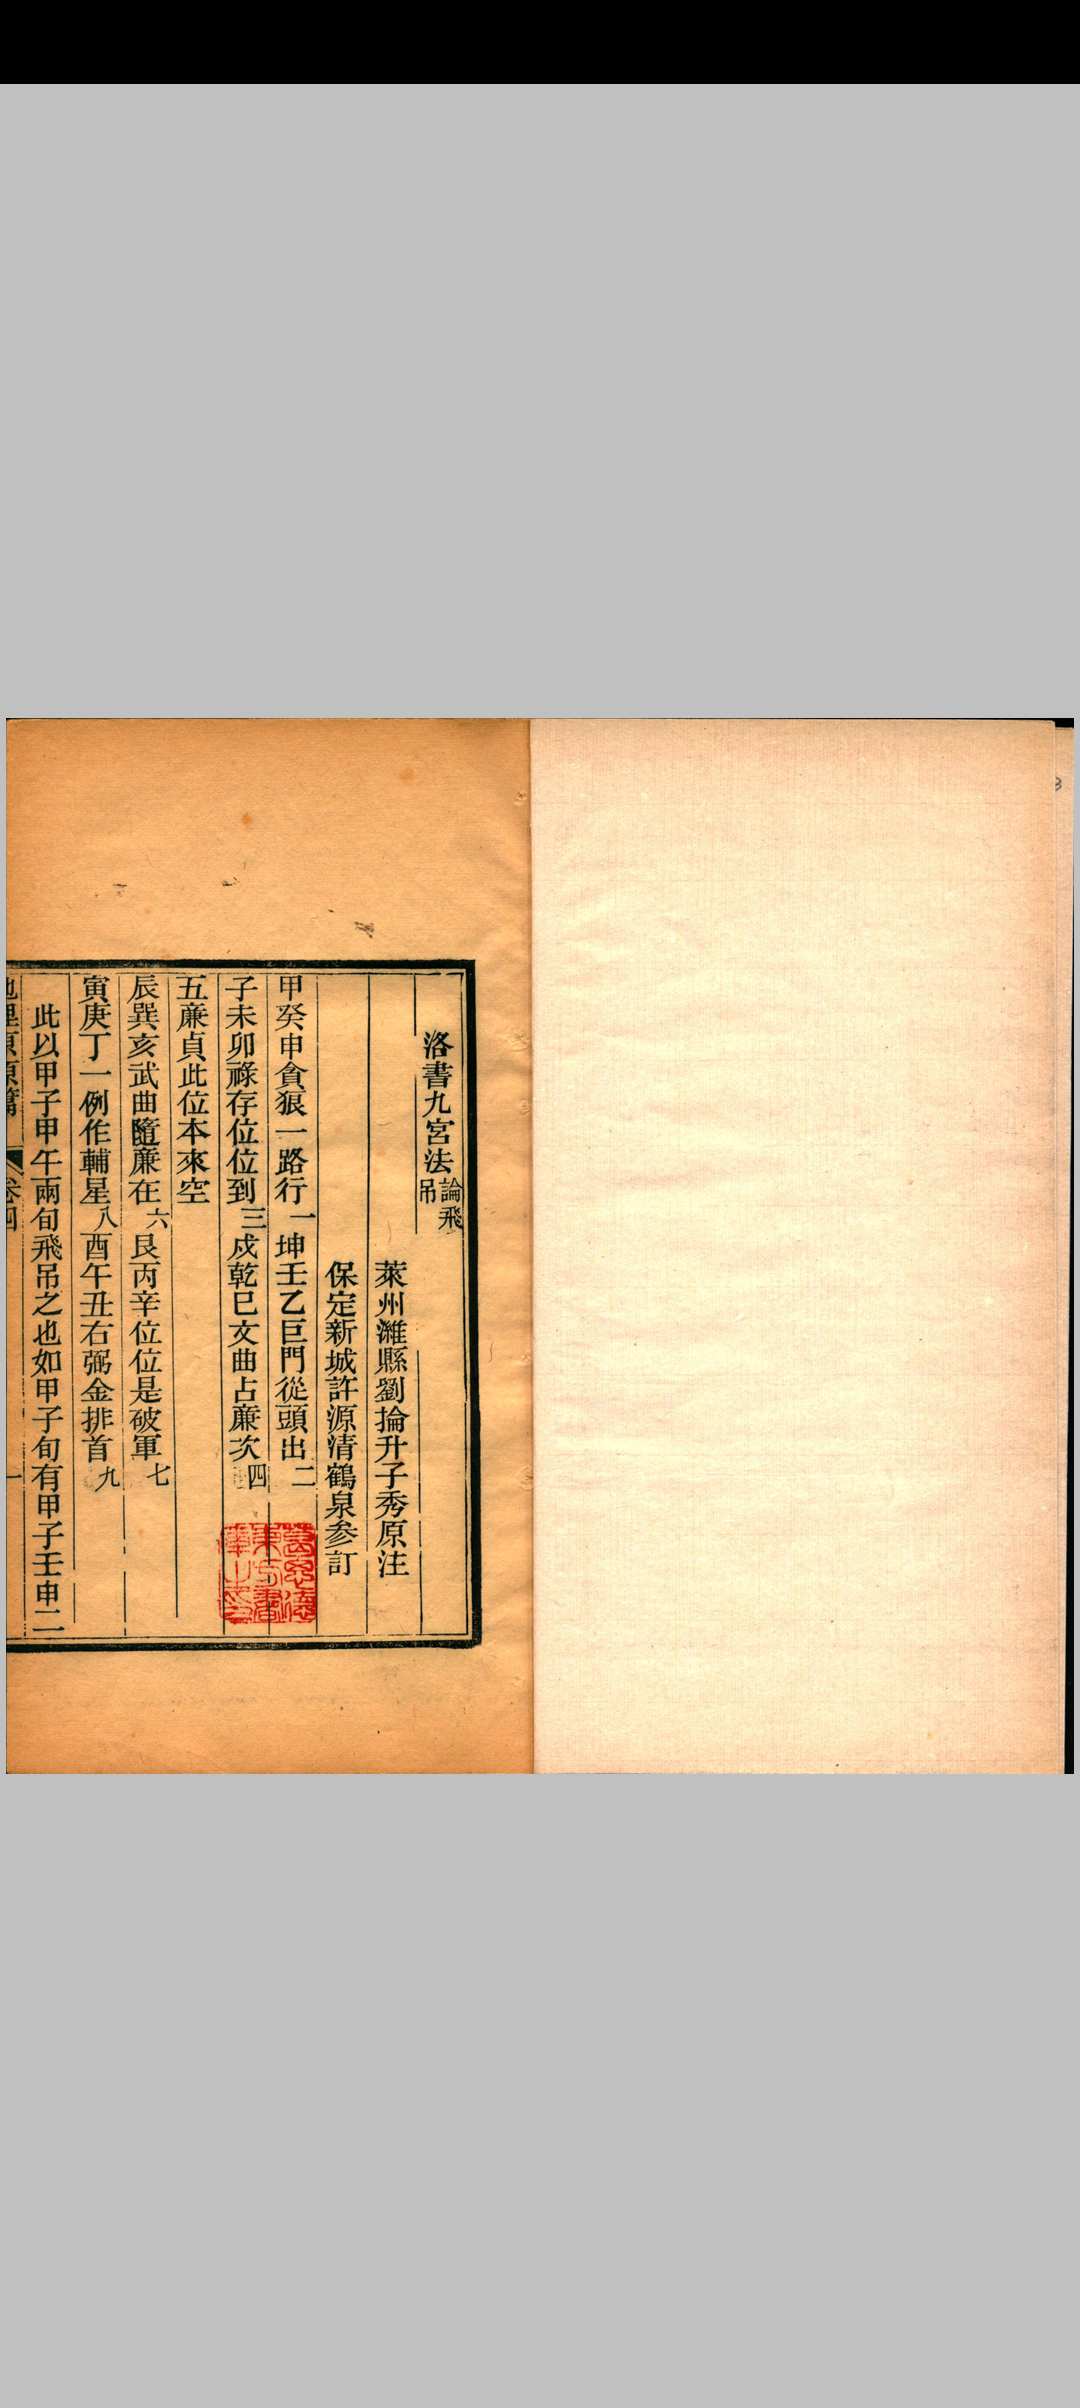 洛書九宮法論飛吊
萊州濰縣劉掄升子秀原注
保定新城許源清鶴泉參訂
甲癸申貪狼一路行一坤壬乙巨門從頭出二
子未卯祿存位位到三戌乾巳文曲占廉次四
五廉貞此位本來空
辰巽亥武曲隨廉在六艮丙辛位位是破軍七
寅庚丁一例作輔星八酉午丑右弼金排首九
此以甲子甲午兩旬飛吊之也如甲子旬有甲子壬申二
卷四
一